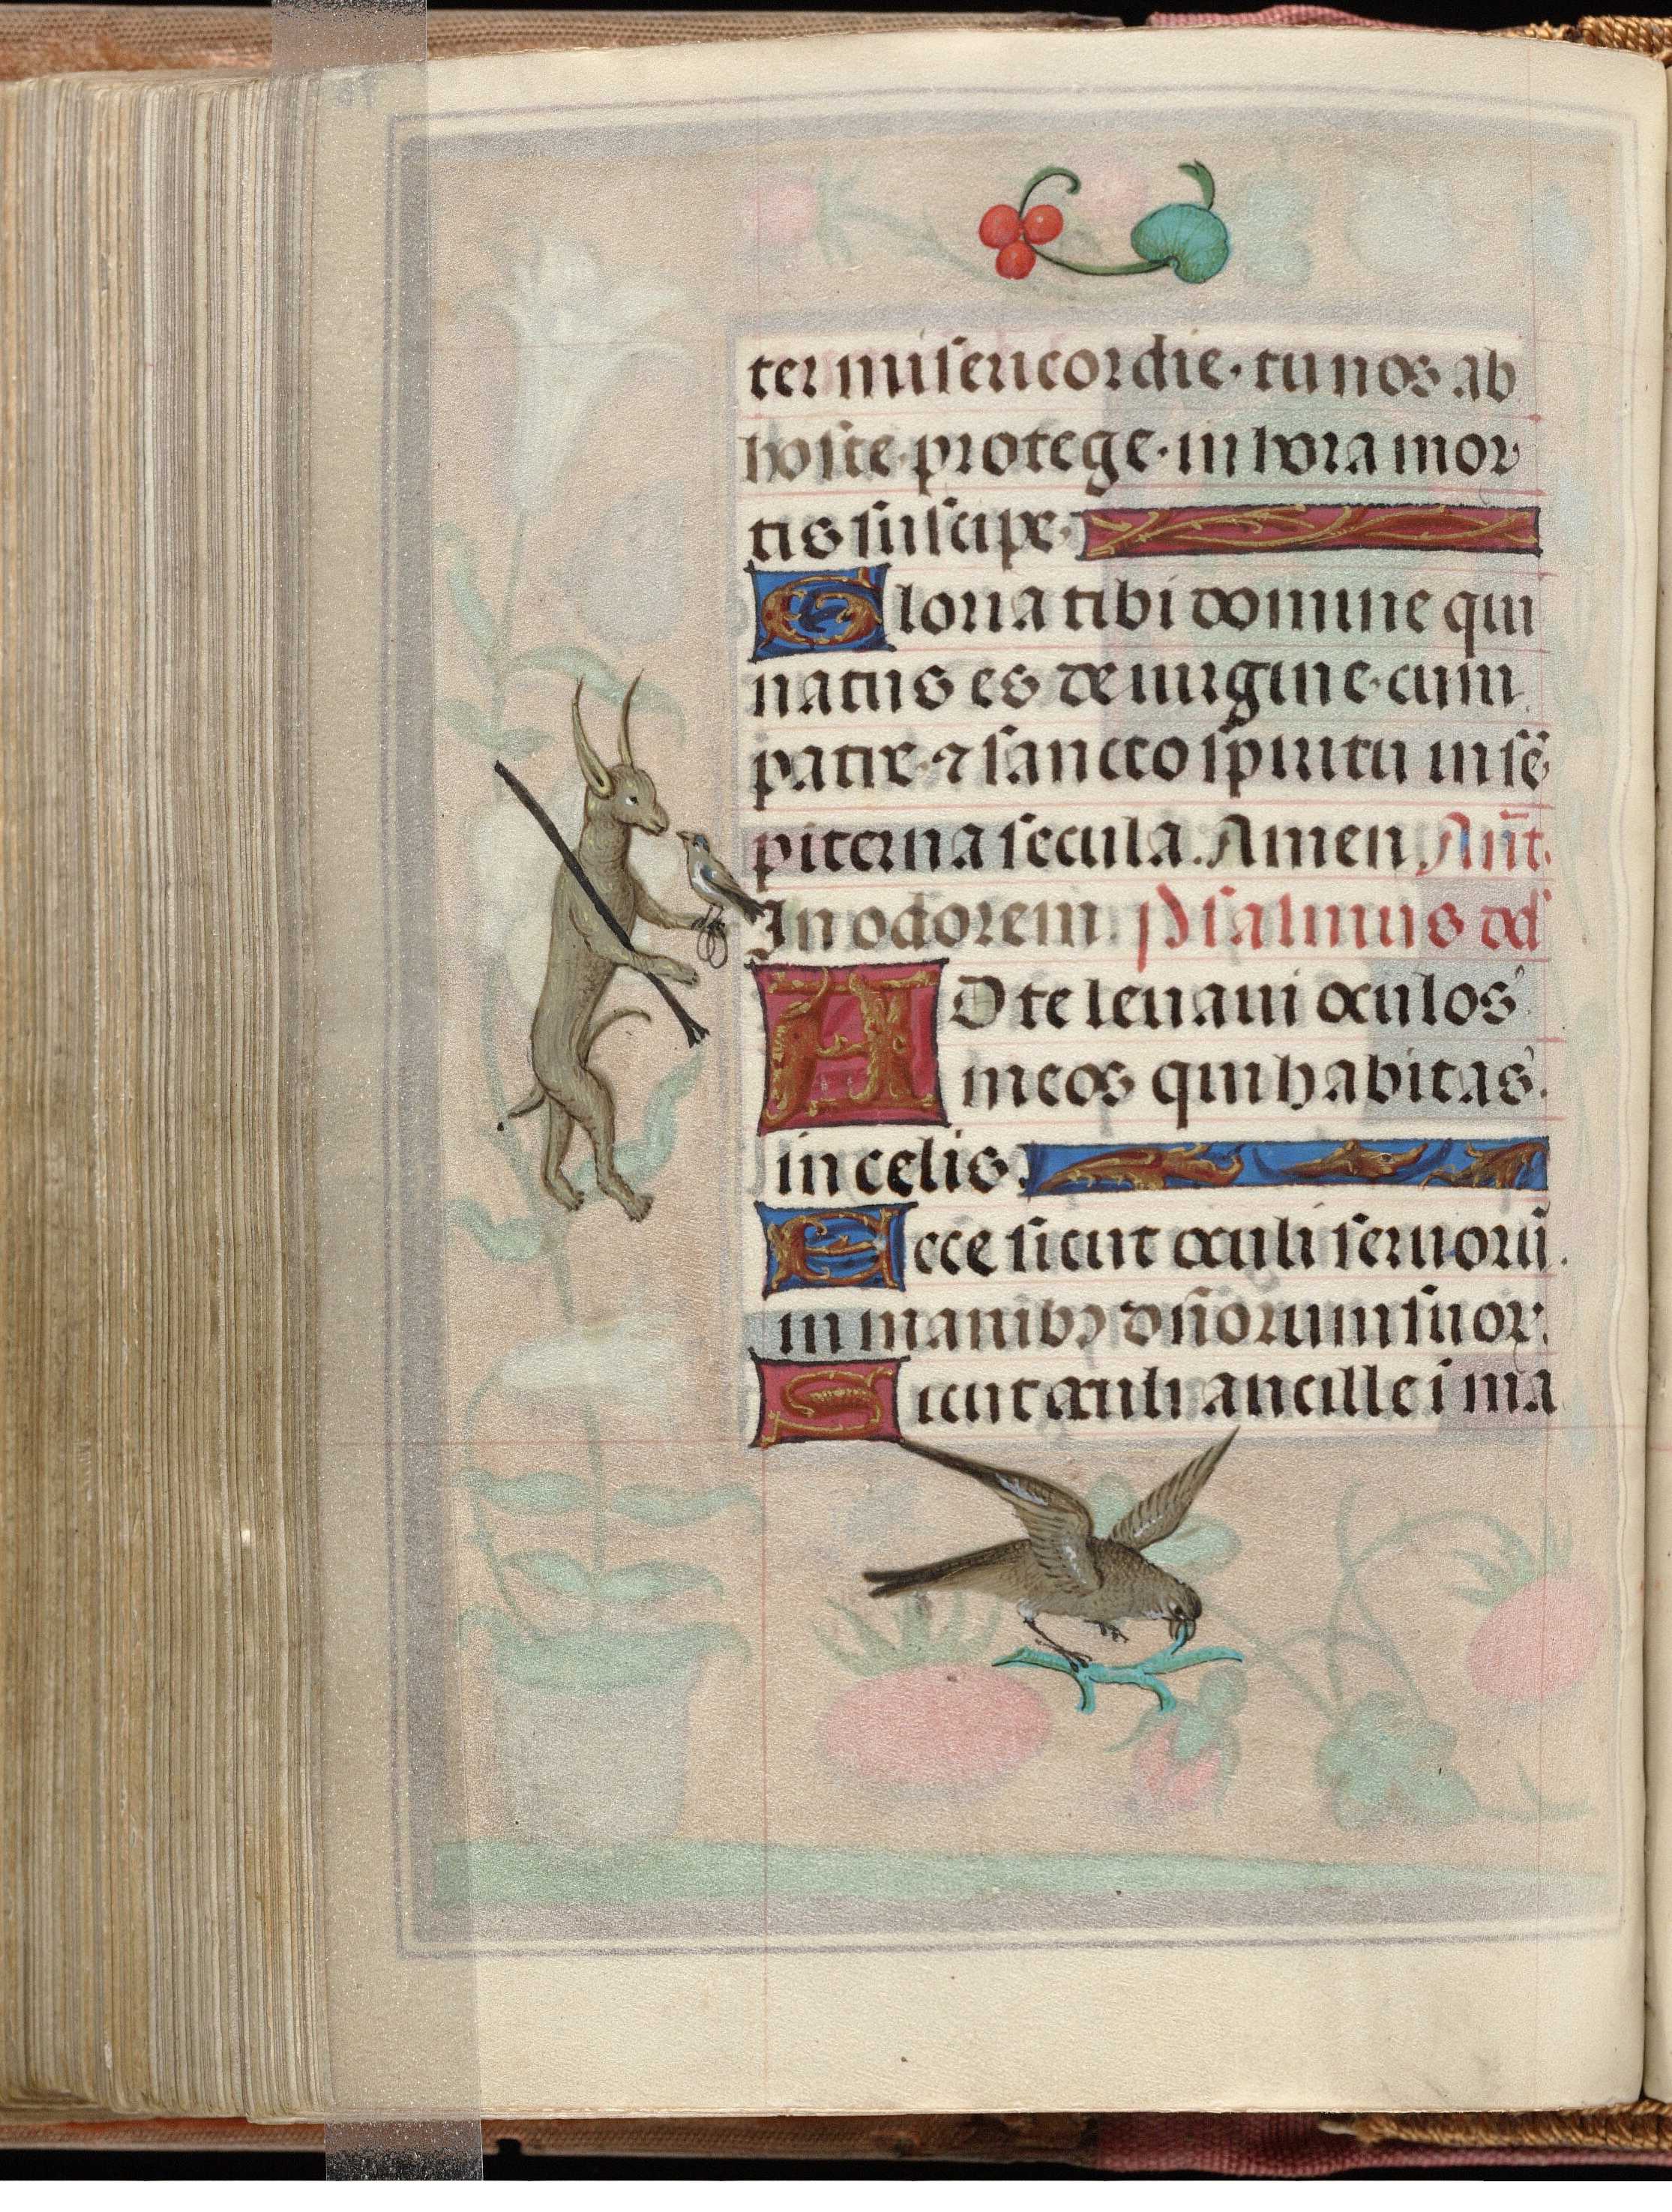 ter misericordie. tu nos ab
hoste protege. in hora mor
tis suscipe.
Gloria tibi domine qui
natus es de uirgine. cum
patre ⁊ sancto spiritu in sē
piterna secula. Amen. Añt.
In odorem. Psalmus dd̄
AD te leuaui oculos
meos qui habitas
in celis.
Ecce sicut oculi seruorū
in manibꝫ dñorum suoꝝ.
Sicut oculi ancille ī ma